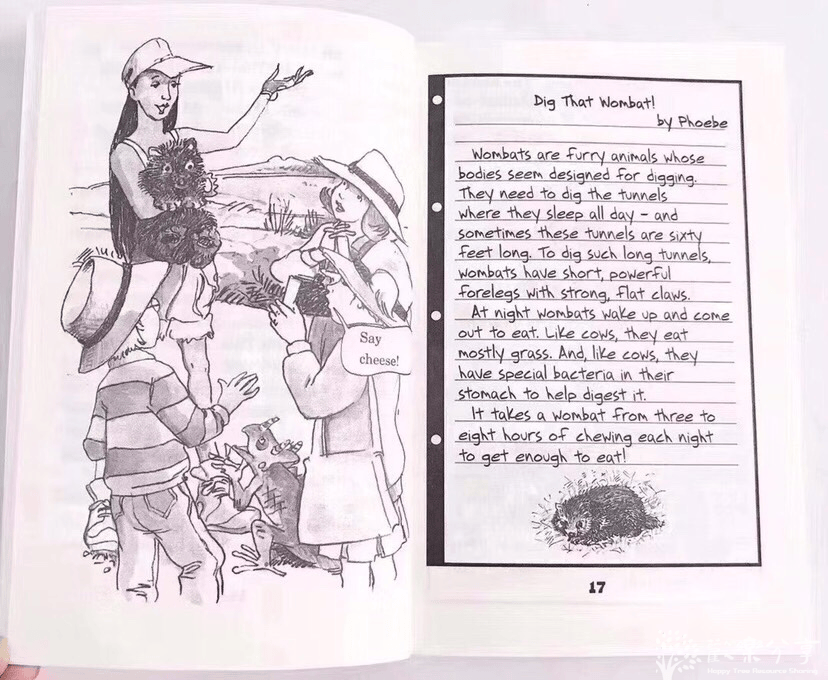 Say
cheese!
Dig That Wombat!
by Phoebe
Wombats are furry animals whose
bodies seem designed for digging.
They need to dig the tunnels
where they sleep all day – and
sometimes these tunnels are sixty
feet long. To dig such long tunnels,
wombats have short, powerful
forelegs with strong, flat claws.
At night wombats wake up and come
out to eat. Like cows, they eat
mostly grass. And, like cows, they
have special bacteria in their
stomach to help digest it.
It takes a wombat from three to
eight hours of chewing each night
to get enough to eat!
17
Happy Tree Resource Sharing